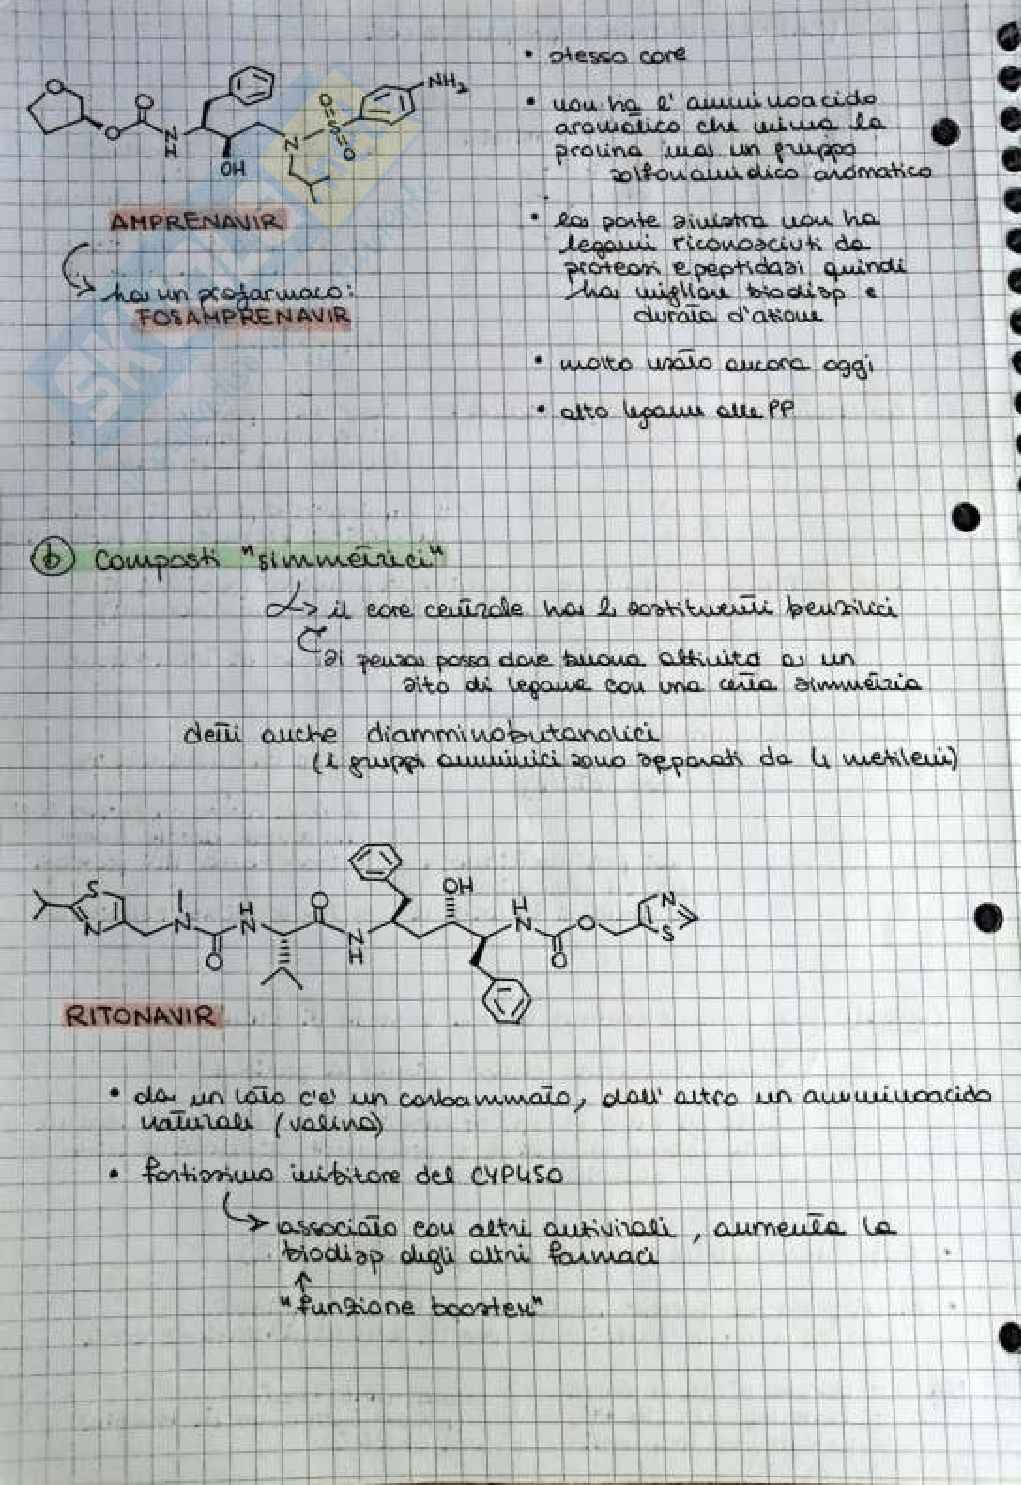 • stesso core
• non ha l'amminoacido
aromatico che mima la
prolina ma un gruppo
solfonamidico aromatico
O
O
O
N
H
OH
N
O=S=O
NH2
AMPRENAVIR
ha un profarmaco:
FOSAMPRENAVIR
• la parte sinistra non ha
legami riconosciuti da
proteasi e peptidasi quindi
ha migliore biodisp e
durata d'azione
• molto usato ancora oggi
• alto legame alle PP
b composti "simmetrici"
il core centrale ha 2 sostituenti benzilici
si pensa possa dare buona affinità a un
sito di legame con una certa simmetria
detti anche diamminobutanolici
(i gruppi amminici sono separati da 4 metileni)
S
N
N
O
H
N
O
N
H
OH
H
N
O
O
N
S
RITONAVIR
• da un lato c'è un carbammato, dall'altro un amminoacido
naturale (valina)
• fortissimo inibitore del CYP450
associato con altri antivirali, aumenta la
biodisp degli altri farmaci
"funzione booster"
SKUOLA